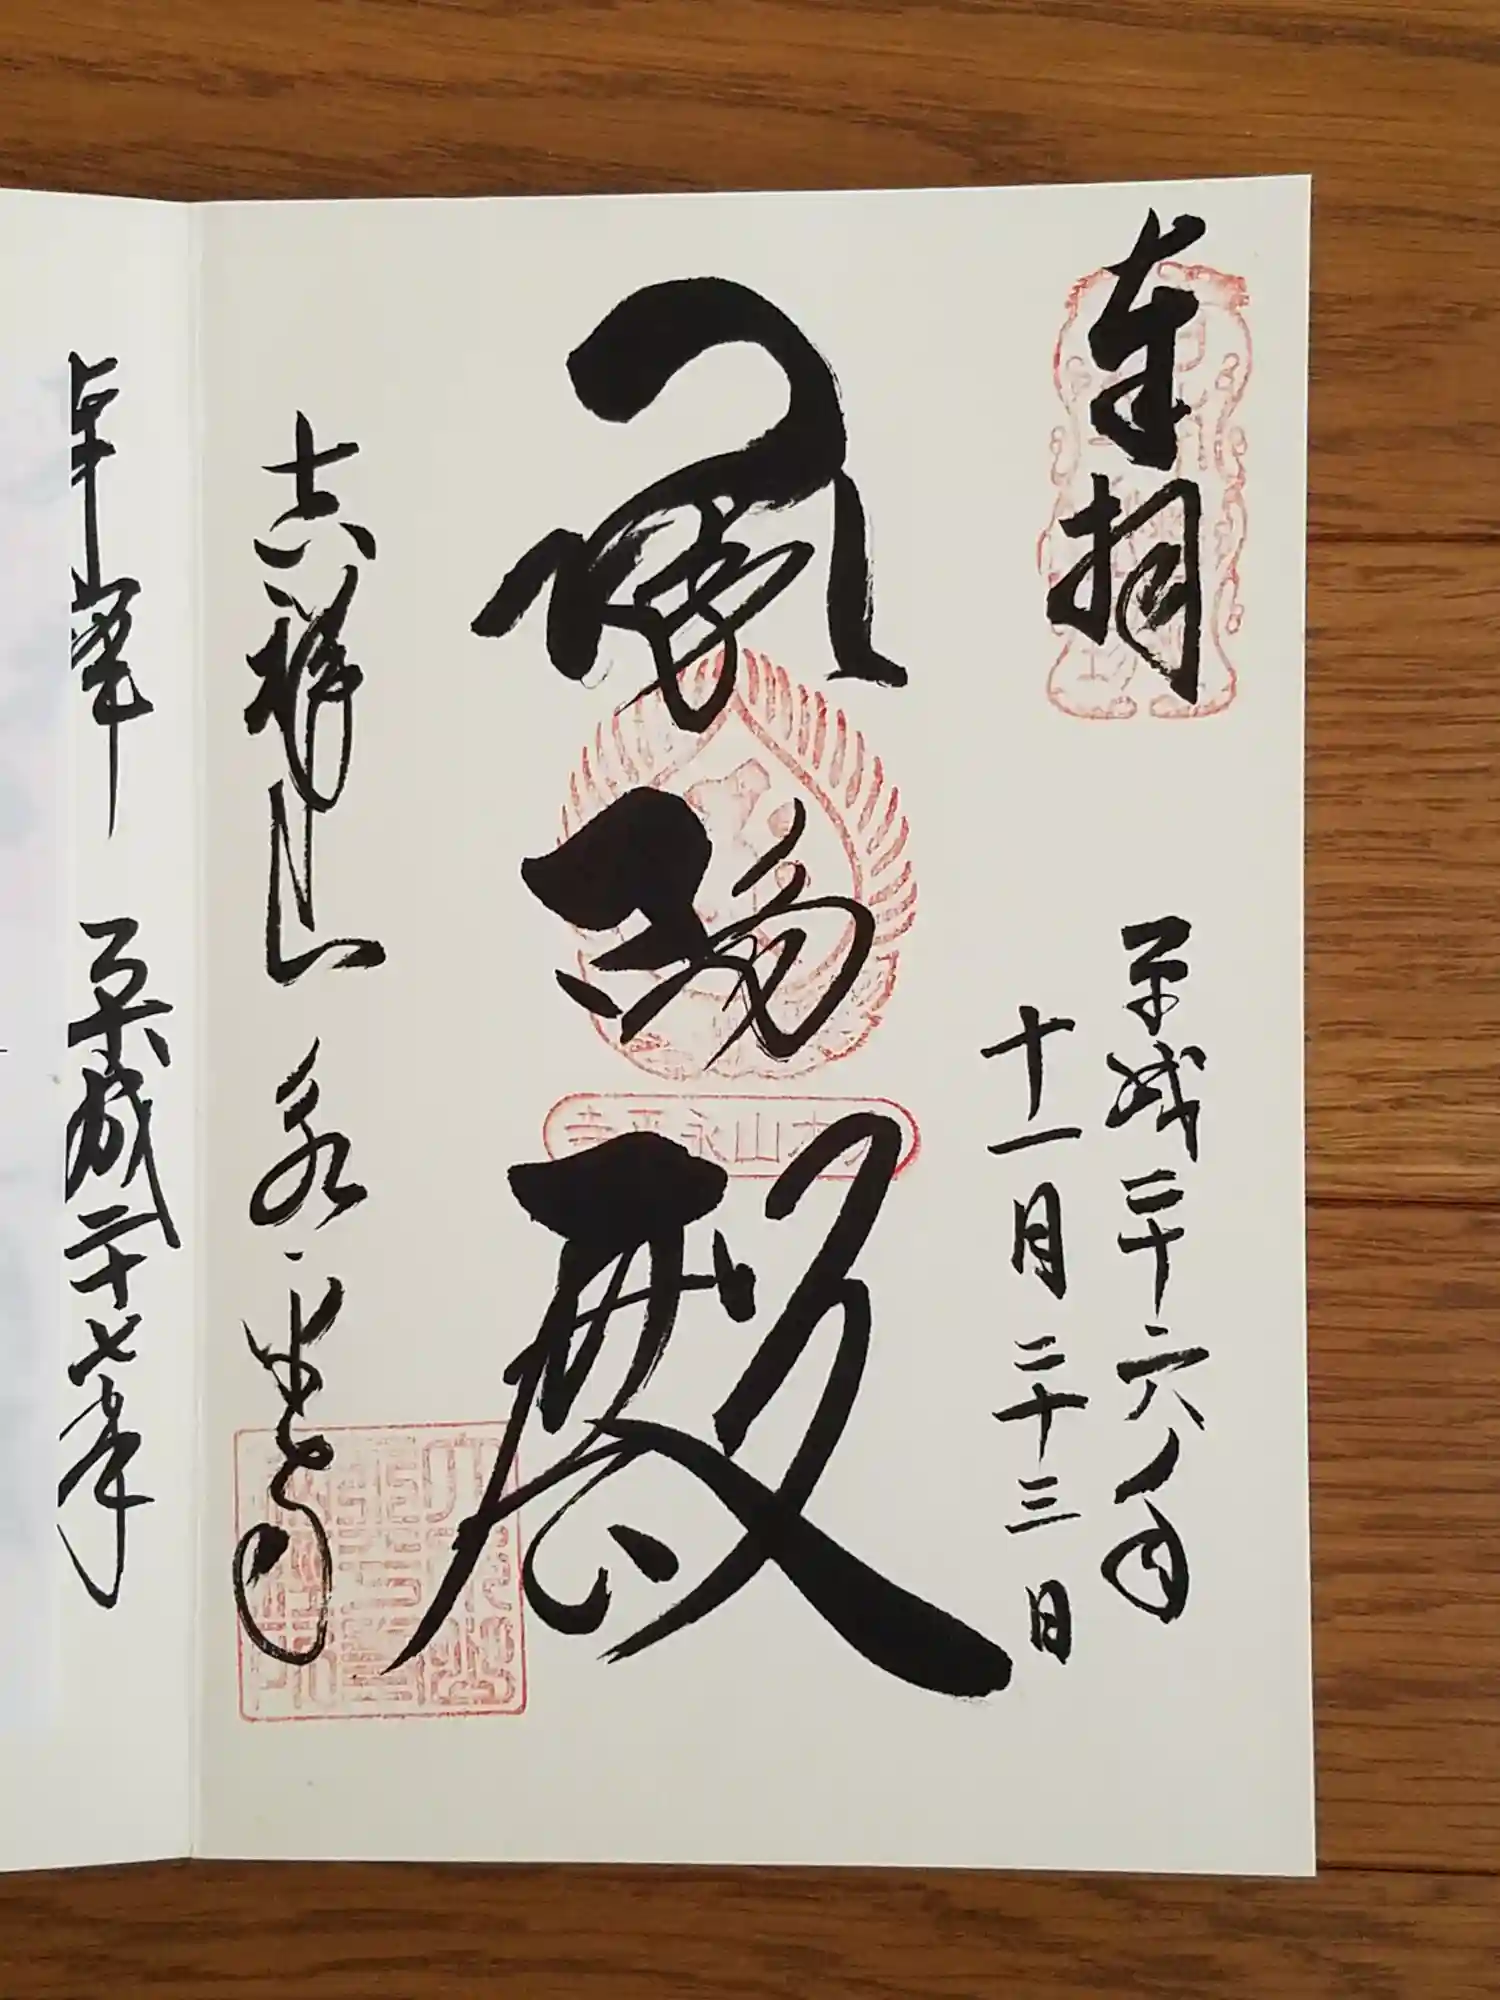 奉拝
平成二十六年
十一月二十三日
承陽殿
大本山永平寺
吉祥山 永平寺
平成二十七年